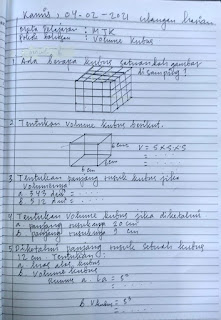 Kamis, 04-02-2021 ulangan harian
Mata Pelajaran : MTK
: Volume Kubus
1. Ada berapa kubus satuankah gambar
di samping ?
2. Tentukan volume kubus berikut.
6cm
6cm
6 cm
V = S x S x S
= . . . . .
= . . . . .
3. Tentukan panjang rusuk kubus jika
Volumenya
a. 343 dm³ = . . . .
b. 512 dm³ = . . . .
4. Tentukan Volume kubus jika diketahui
a. panjang rusuknya 20 cm
b. panjang rusuknya 9 cm
5. Diketahui panjang rusuk sebuah kubus
12 cm Tentukan !
a. luas alas kubus
b. Volume kubus
Rumus a. La = S²
= . . .
= . . .
b. V kubus = S³
= . . .